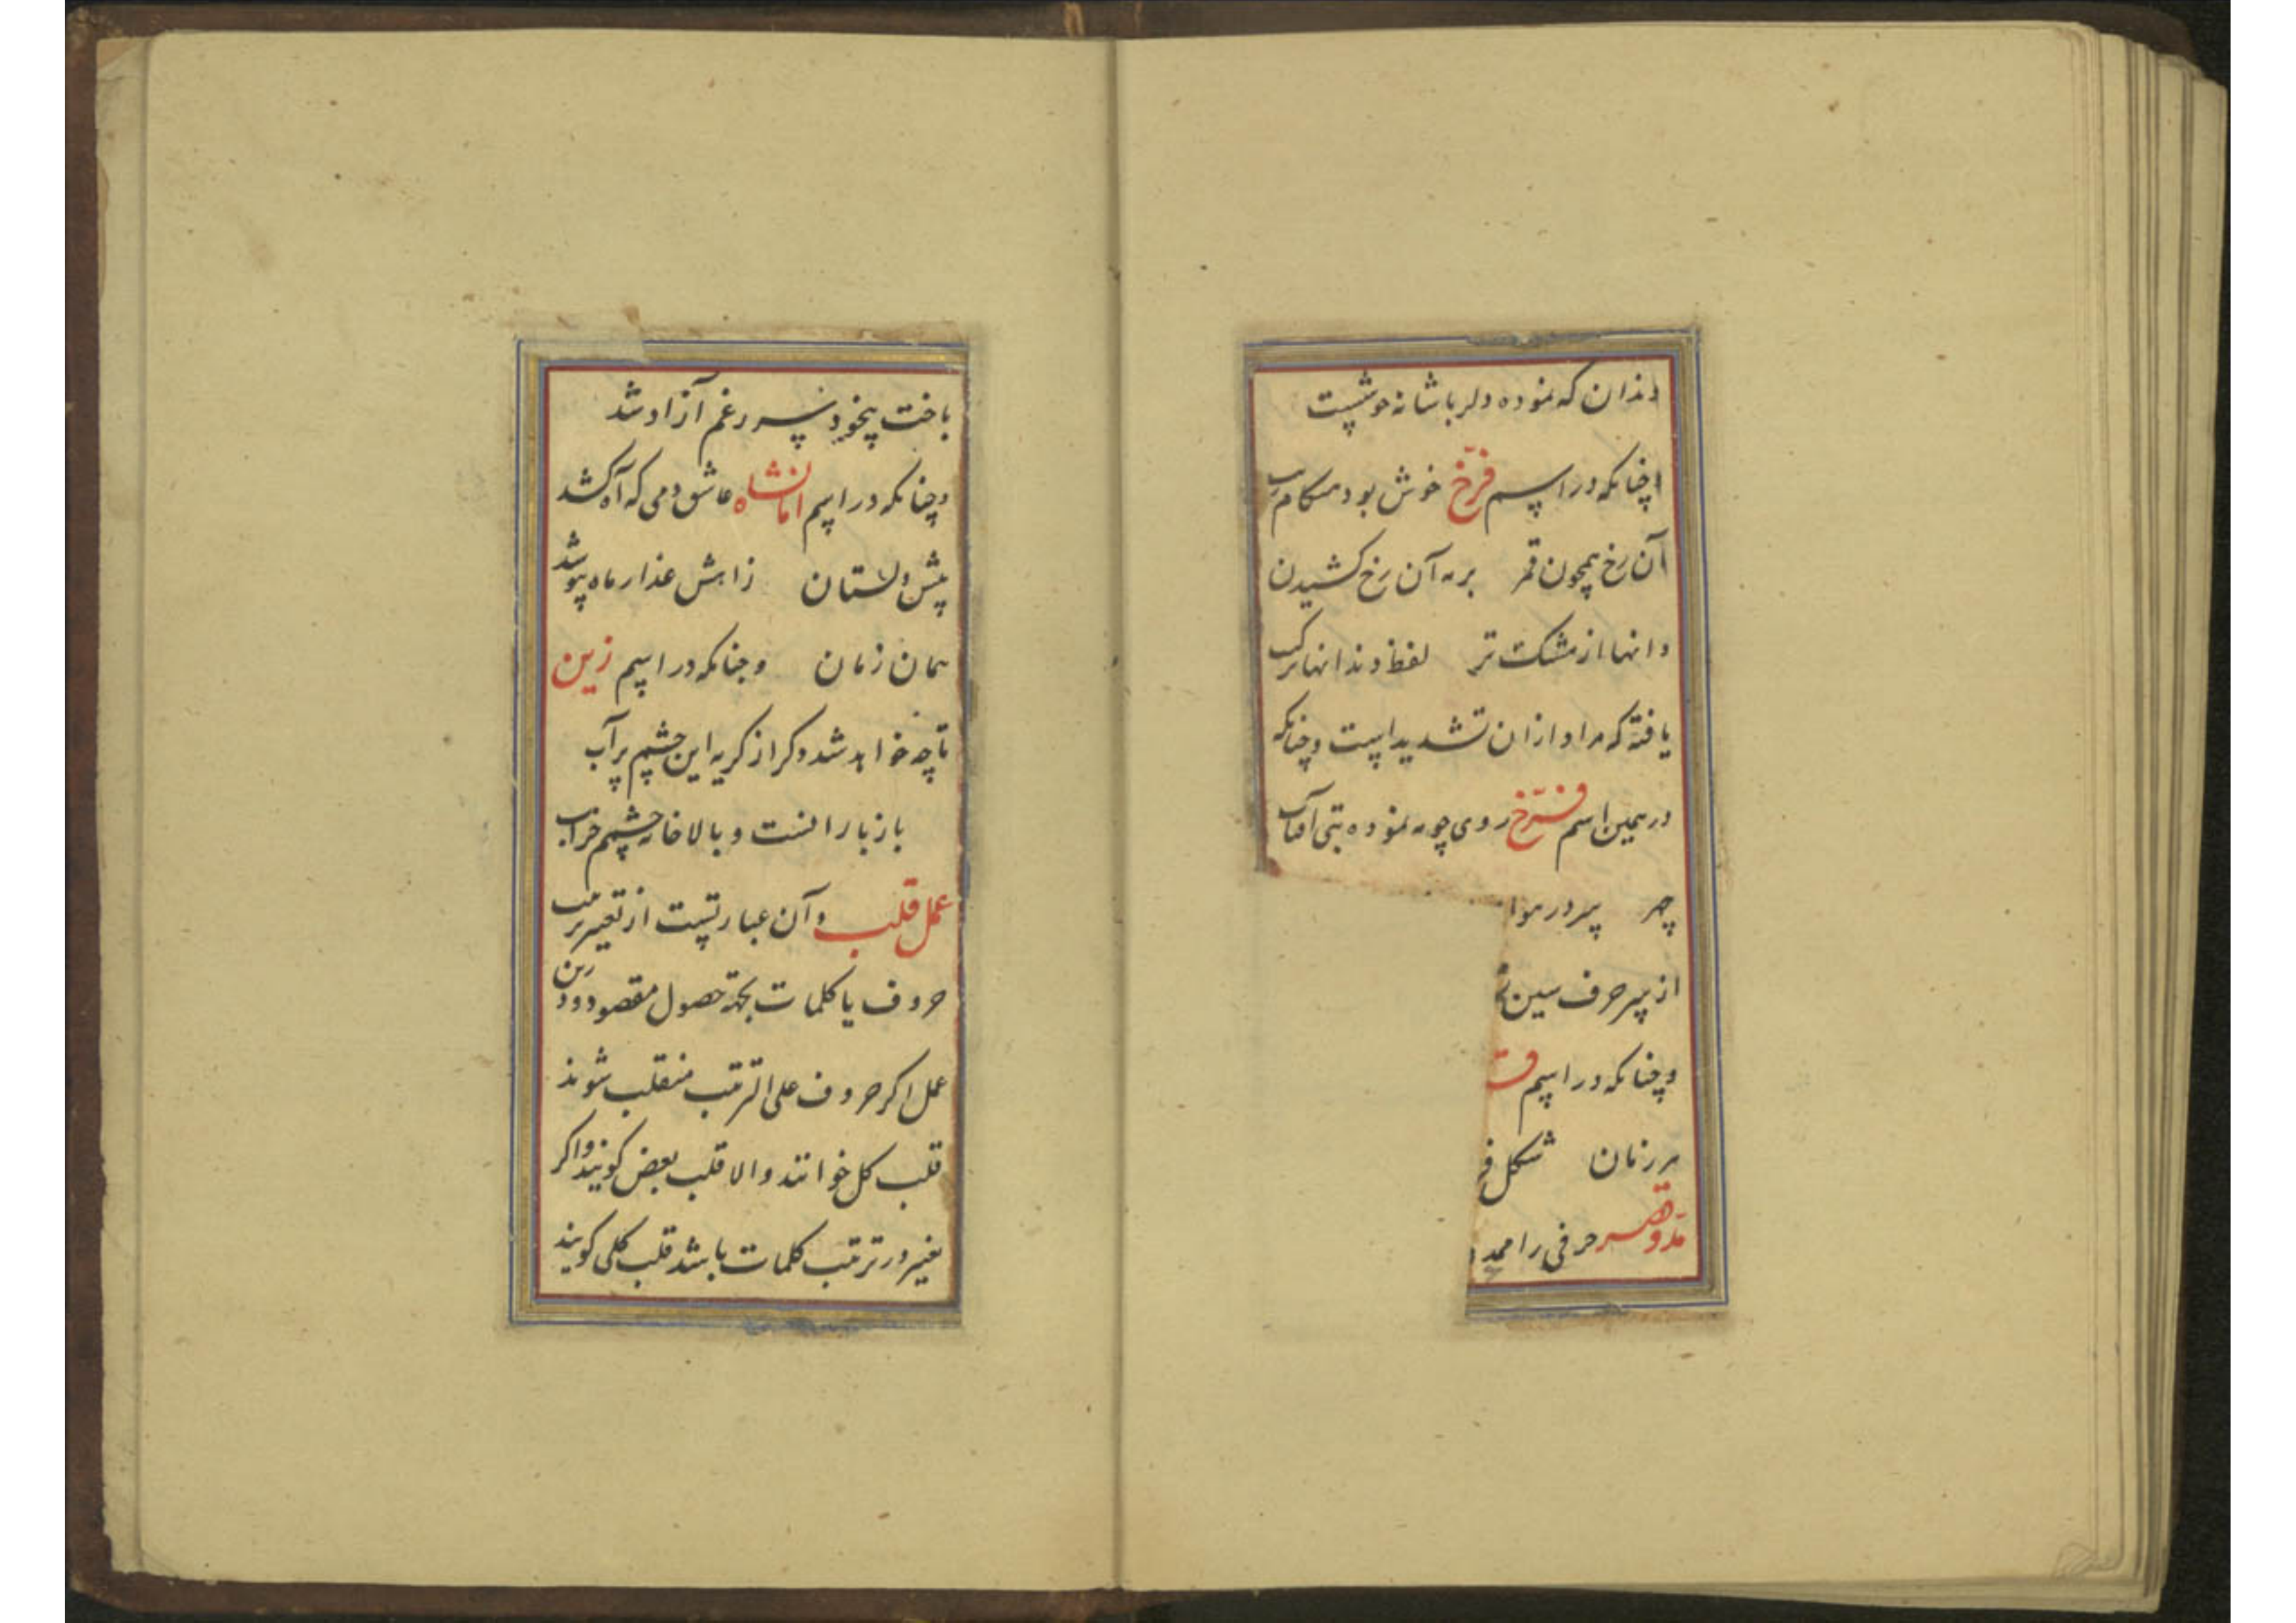 دندان که نموده دلربا شانه خوشست
وچنانکه در اسم فرّخ خوش بود هنگام زیب
آن رخ همچون قمر بر مه آن رخ کشیدن
دانها از مشک تر لفظ دندانها ترکیب
یافته که مراد از ان تشدید است وچنانکه
در همین اسم فرّخ روی چو مه نموده بتی آفتاب
چهر پیر در هوا
از پیر حرف سین
وچنانکه در اسم
هر زمان شکل
مدّ وقصر حرفی را ممد
باخت بیخود شد سر زغم آزاد شد
وچنانکه در اسم امانشاه عاشق دمی که آه کشد
پیش دلستان زاهش عذار ماه بپوشد
همان زمان وچنانکه در اسم زین
تا چه خواهد شد دگر از گریه این چشم پر آب
باز بارانست و بالا خانه چشم خراب
عمل قلب وآن عبارتست از تغییر ترتیب
حروف یا کلمات بجهة حصول مقصود ودرین
عمل اگر حروف علی الترتیب منقلب شوند
قلب کل خوانند والا قلب بعض گویند واگر
تغییر در ترتیب کلمات باشد قلب کلی گویند